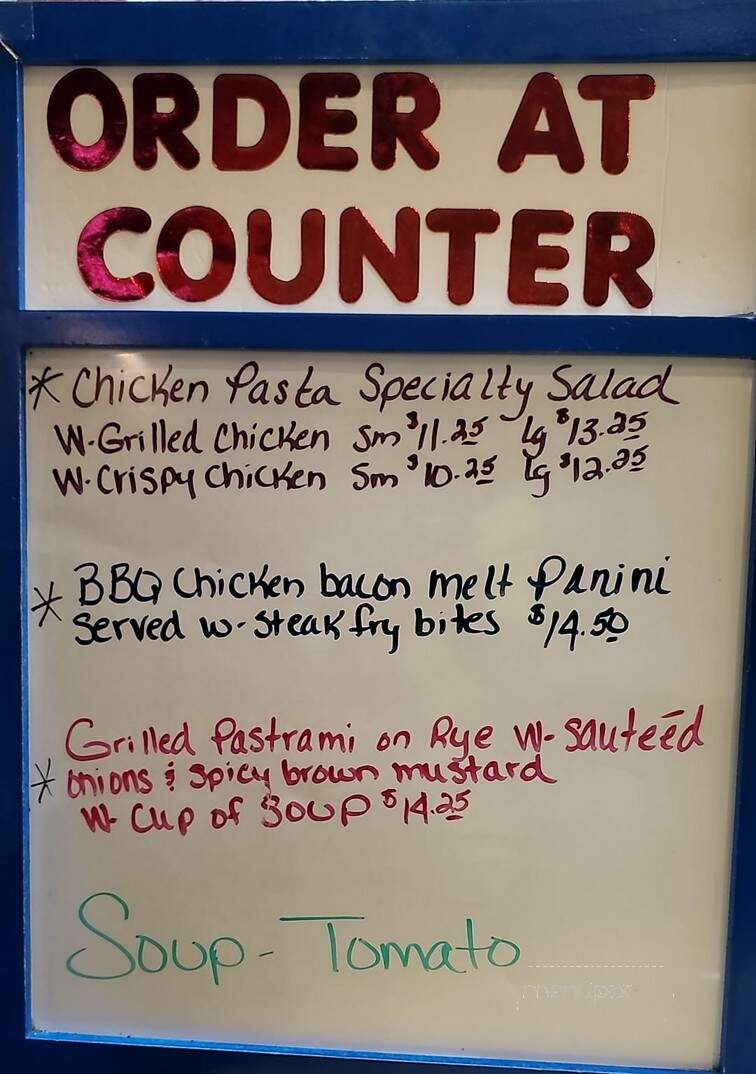 ORDER AT
COUNTER
* Chicken Pasta Specialty Salad
W-Grilled Chicken Sm $11.25 Lg $13.25
W-Crispy Chicken Sm $10.25 Lg $12.25
* BBQ Chicken bacon melt Panini
Served w-steak fry bites $14.50
Grilled Pastrami on Rye W-sauteēd
* onions & spicy brown mustard
W- Cup of Soup $14.25
Soup-Tomato
menupix